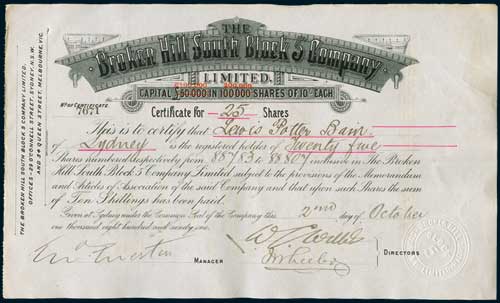 THE
Broken Hill South Block 5 Company
LIMITED.
£100,000 200,000
CAPITAL £50,000 IN 100000 SHARES OF 10/- EACH.
No OF CERTIFICATE
7671
Certificate for 25 Shares
This is to certify that Lewis Potter Bam
of Sydney is the registered holder of Twenty five
Shares numbered respectively from 88783 to 88807 inclusive in The Broken
Hill South Block 5 Company Limited subject to the provisions of the Memorandum
and Articles of Association of the said Company and that upon such Shares the sum
of Ten Shillings has been paid.
Given at Sydney under the Common Seal of the Company this 2nd day of October
one thousand eight hundred and ninety one.
MANAGER
DIRECTORS
THE BROKEN HILL SOUTH BLOCK 5 COMPANY LIMITED.
OFFICES - 29 O'CONNELL STREET, SYDNEY, N.S.W.
AND 34 QUEEN STREET, MELBOURNE, VIC.